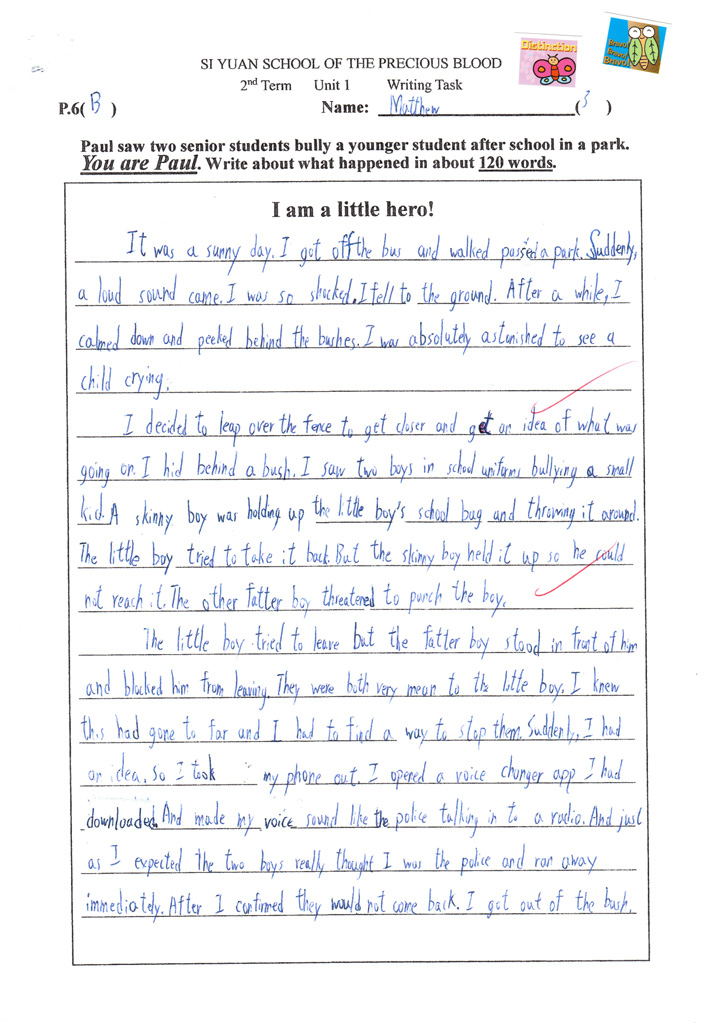 Distinction
Bravo!
Bravo!
Bravo!
SI YUAN SCHOOL OF THE PRECIOUS BLOOD
2nd Term Unit 1 Writing Task
P.6( B ) Name: Matthew ( 3 )
Paul saw two senior students bully a younger student after school in a park.
You are Paul. Write about what happened in about 120 words.
I am a little hero!
It was a sunny day. I got off the bus and walked passed a park. Suddenly,
a loud sound came. I was so shocked, I fell to the ground. After a while, I
calmed down and peeked behind the bushes. I was absolutely astunished to see a
child crying.
I decided to leap over the fence to get closer and get an idea of what was
going on. I hid behind a bush. I saw two boys in school uniforms bullying a small
kid. A skinny boy was holding up the little boy's school bag and throwing it around.
The little boy tried to take it back. But the skinny boy held it up so he could
not reach it. The other fatter boy threatened to punch the boy.
The little boy tried to leave but the fatter boy stood in front of him
and blocked him from leaving. They were both very mean to the little boy. I knew
this had gone to far and I had to find a way to stop them. Suddenly, I had
an idea. so I took my phone out. I opened a voice changer app I had
downloaded. And made my voice sound like the police talking in to a radio. And just
as I expected the two boys really thought I was the police and ran away
immediately. After I confirmed they would not come back. I got out of the bush.